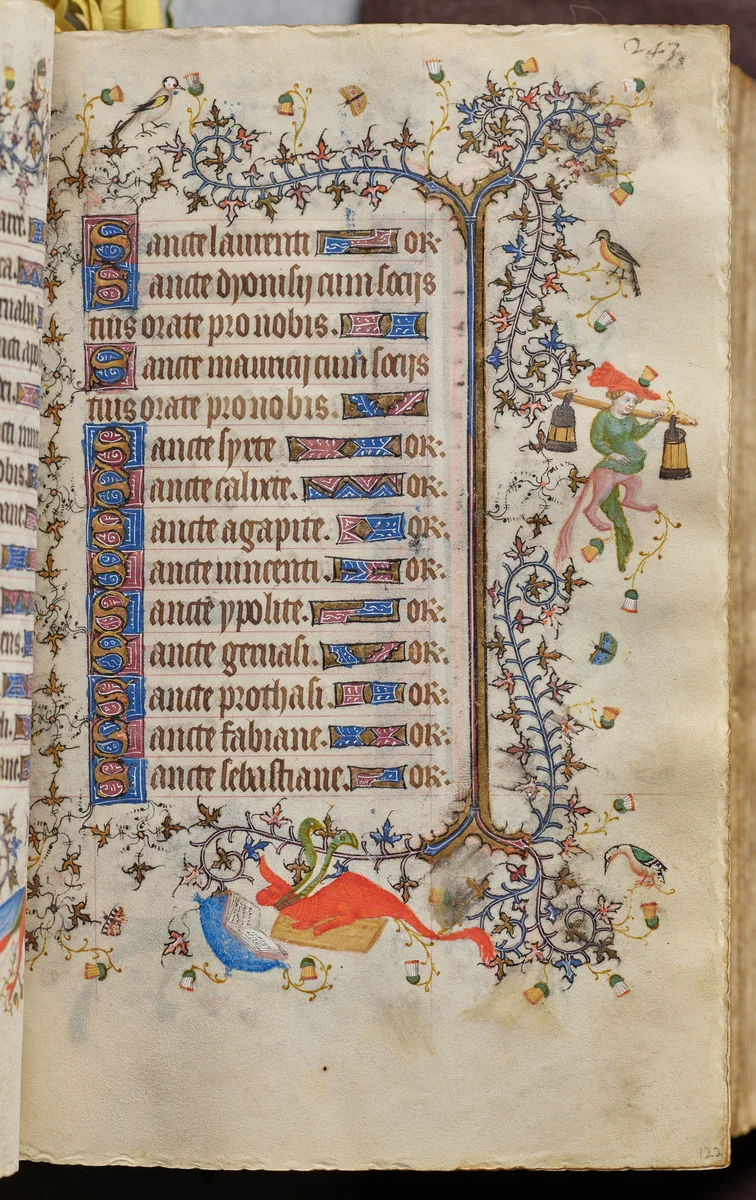 243
Sancte laurenti OR.
Sancte dyonisij cum socijs
tuis orate pro nobis.
Sancte mauricij cum socijs
tuis orate pro nobis.
Sancte syxte OR.
Sancte calixte. OR.
Sancte agapite. OR.
Sancte uincenti. OR.
Sancte ypolite. OR.
Sancte geruasi. OR.
Sancte prothasi. OR.
Sancte fabiane. OR.
Sancte sebastiane. OR.
122